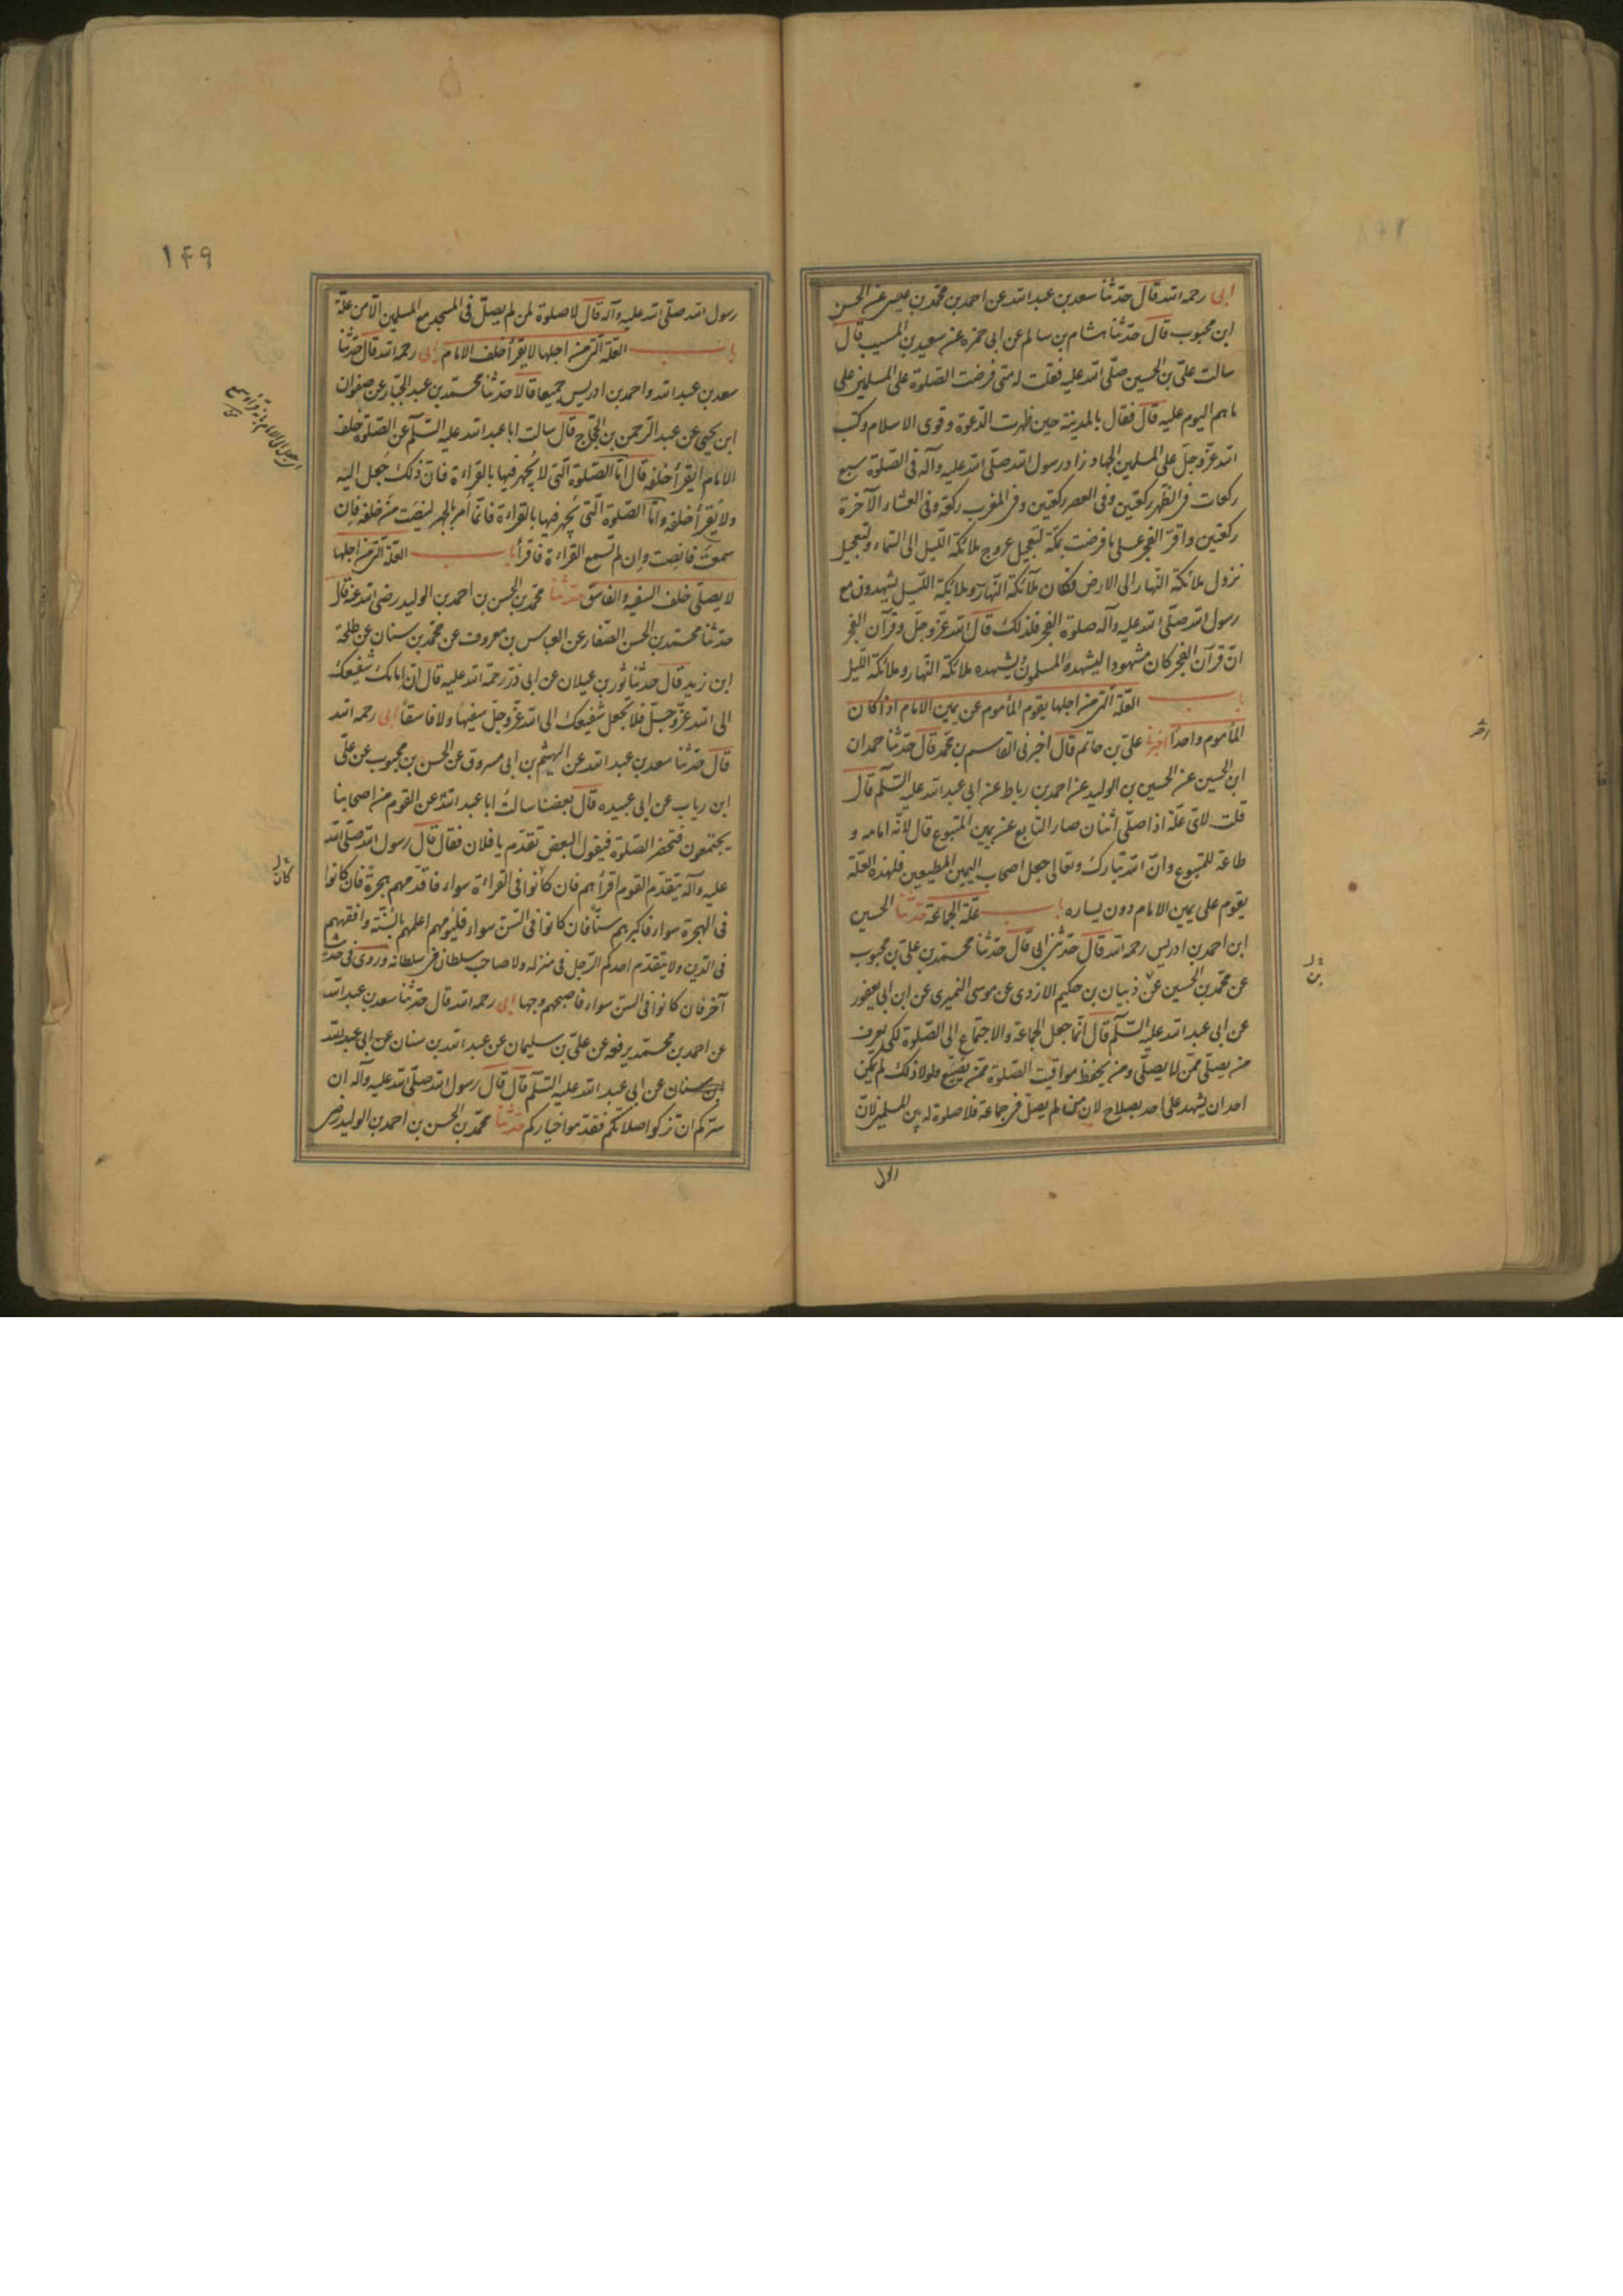 ابى رحمه الله قال حدثنا سعد بن عبد الله عن احمد بن محمد بن عيسى عن الحسن
ابن محبوب قال حدثنا هشام بن سالم عن ابى حمزه عن سعيد بن المسيب قال
سالت على بن الحسين صلى الله عليه فقلت له متى فرضت الصلوة على المسلمين على
ماهم اليوم عليه قال فقال بالمدينة حين ظهرت الدعوة وقوى الاسلام وكتب
الله عز وجل على المسلمين الجهاد زاد رسول الله صلى الله عليه وآله فى الصلوة سبع
ركعات فى الظهر ركعتين وفى العصر ركعتين وفى المغرب ركعة وفى العشاء الآخرة
ركعتين واقر الفجر على ما فرضت بمكة لتعجيل عروج ملائكة الليل الى السماء ولتعجيل
نزول ملائكة النهار الى الارض فكان ملآئكة النهار وملائكة الليل يشهدون مع
رسول الله صلى الله عليه وآله صلوة الفجر فلذلك قال الله عز وجل وقرآن الفجر
ان قرآن الفجر كان مشهودا ليشهده المسلمون ويشهده ملائكة النهار وملائكة الليل
باب العلة التى من اجلها يقوم المأموم عن يمين الامام اذا كان
المأموم واحدا اخبرنا على بن حاتم قال اخبرنى القاسم بن محمد قال حدثنا حمدان
ابن الحسين عن الحسين بن الوليد عن احمد بن رباط عن ابى عبد الله عليه السلم قال
قلت لاى علة اذا صلى اثنان صار التابع عن يمين المتبوع قال لانه امامه و
طاعة للمتبوع وان الله تبارك وتعالى جعل اصحاب اليمين المطيعين فلهذه العلة
يقوم على يمين الامام دون يساره باب علة الجماعة حدثنا الحسين
ابن احمد بن ادريس رحمه الله قال حدثنى ابى قال حدثنا محمد بن على بن محبوب
عن محمد بن الحسين عن ذبيان بن حكيم الازدى عن موسى النميرى عن ابن ابى يعفور
عن ابى عبد الله عليه السلم قال انما جعل الجماعة والاجتماع الى الصلوة لكى يعرف
من يصلى ممن لا يصلى ومن يحفظ مواقيت الصلوة ممن يضيع ولولا ذلك لم يمكن
احد ان يشهد على احد بصلاح لان من لم يصل فى جماعة فلا صلوة له بين المسلمين لان
بن
رسول
١۴٩
رسول الله صلى الله عليه وآله قال لا صلوة لمن لم يصل فى المسجد مع المسلمين الا من علة
باب العلة التى من اجلها لا يقرأ خلف الامام ابى رحمه الله قال حدثنا
سعد بن عبد الله واحمد بن ادريس جميعا قالا حدثنا محمد بن عبد الجبار عن صفوان
ابن يحيى عن عبد الرحمن بن الحجاج قال سالت ابا عبد الله عليه السلم عن الصلوة خلف
الامام ايقرأ خلفه قال اما الصلوة التى لا يجهر فيها بالقراءة فان ذلك جعل اليه
ولا يقرأ خلفه واما الصلوة التى يجهر فيها بالقراءة فانما امر بالجهر لينصت من خلفه فان
سمعت فانصت وان لم تسمع القراءة فاقرأ باب العلة التى من اجلها
لا يصلى خلف السفيه والفاسق حدثنا محمد بن الحسن بن احمد بن الوليد رضى الله عنه قال
حدثنا محمد بن الحسن الصفار عن العباس بن معروف عن محمد بن سنان عن طلحة
ابن زيد قال حدثنا ثور بن غيلان عن ابى ذر رحمة الله عليه قال ان امامك شفيعك
الى الله عز وجل فلا تجعل شفيعك الى الله عز وجل سفيها ولا فاسقا ابى رحمه الله
قال حدثنا سعد بن عبد الله عن الهيثم بن ابى مسروق عن الحسن بن محبوب عن على
ابن رياب عن ابى عبيده قال بعضنا سالت ابا عبد الله عن القوم من اصحابنا
يجتمعون فتحضر الصلوة فيقول البعض تقدم يا فلان فقال قال رسول الله صلى الله
عليه وآله يتقدم القوم اقرأهم فان كانوا فى القراءة سواء فاقدمهم هجرة فان كانوا
فى الهجرة سواء فاكبرهم سنا فان كانوا فى السن سواء فليؤمهم اعلمهم بالسنة وافقههم
فى الدين ولا يتقدم احدكم الرجل فى منزله ولا صاحب سلطان فى سلطانه وروى فى حديث
آخر فان كانوا فى السن سواء فاصبحهم وجها ابى رحمه الله قال حدثنا سعد بن عبد الله
عن احمد بن محمد يرفعه عن على بن سليمان عن عبد الله بن سنان عن ابى عبد الله
بن سنان عن ابى عبد الله عليه السلم قال قال رسول الله صلى الله عليه وآله ان
سركم ان تزكوا صلاتكم فقدموا خياركم حدثنا محمد بن الحسن بن احمد بن الوليد رض
كان